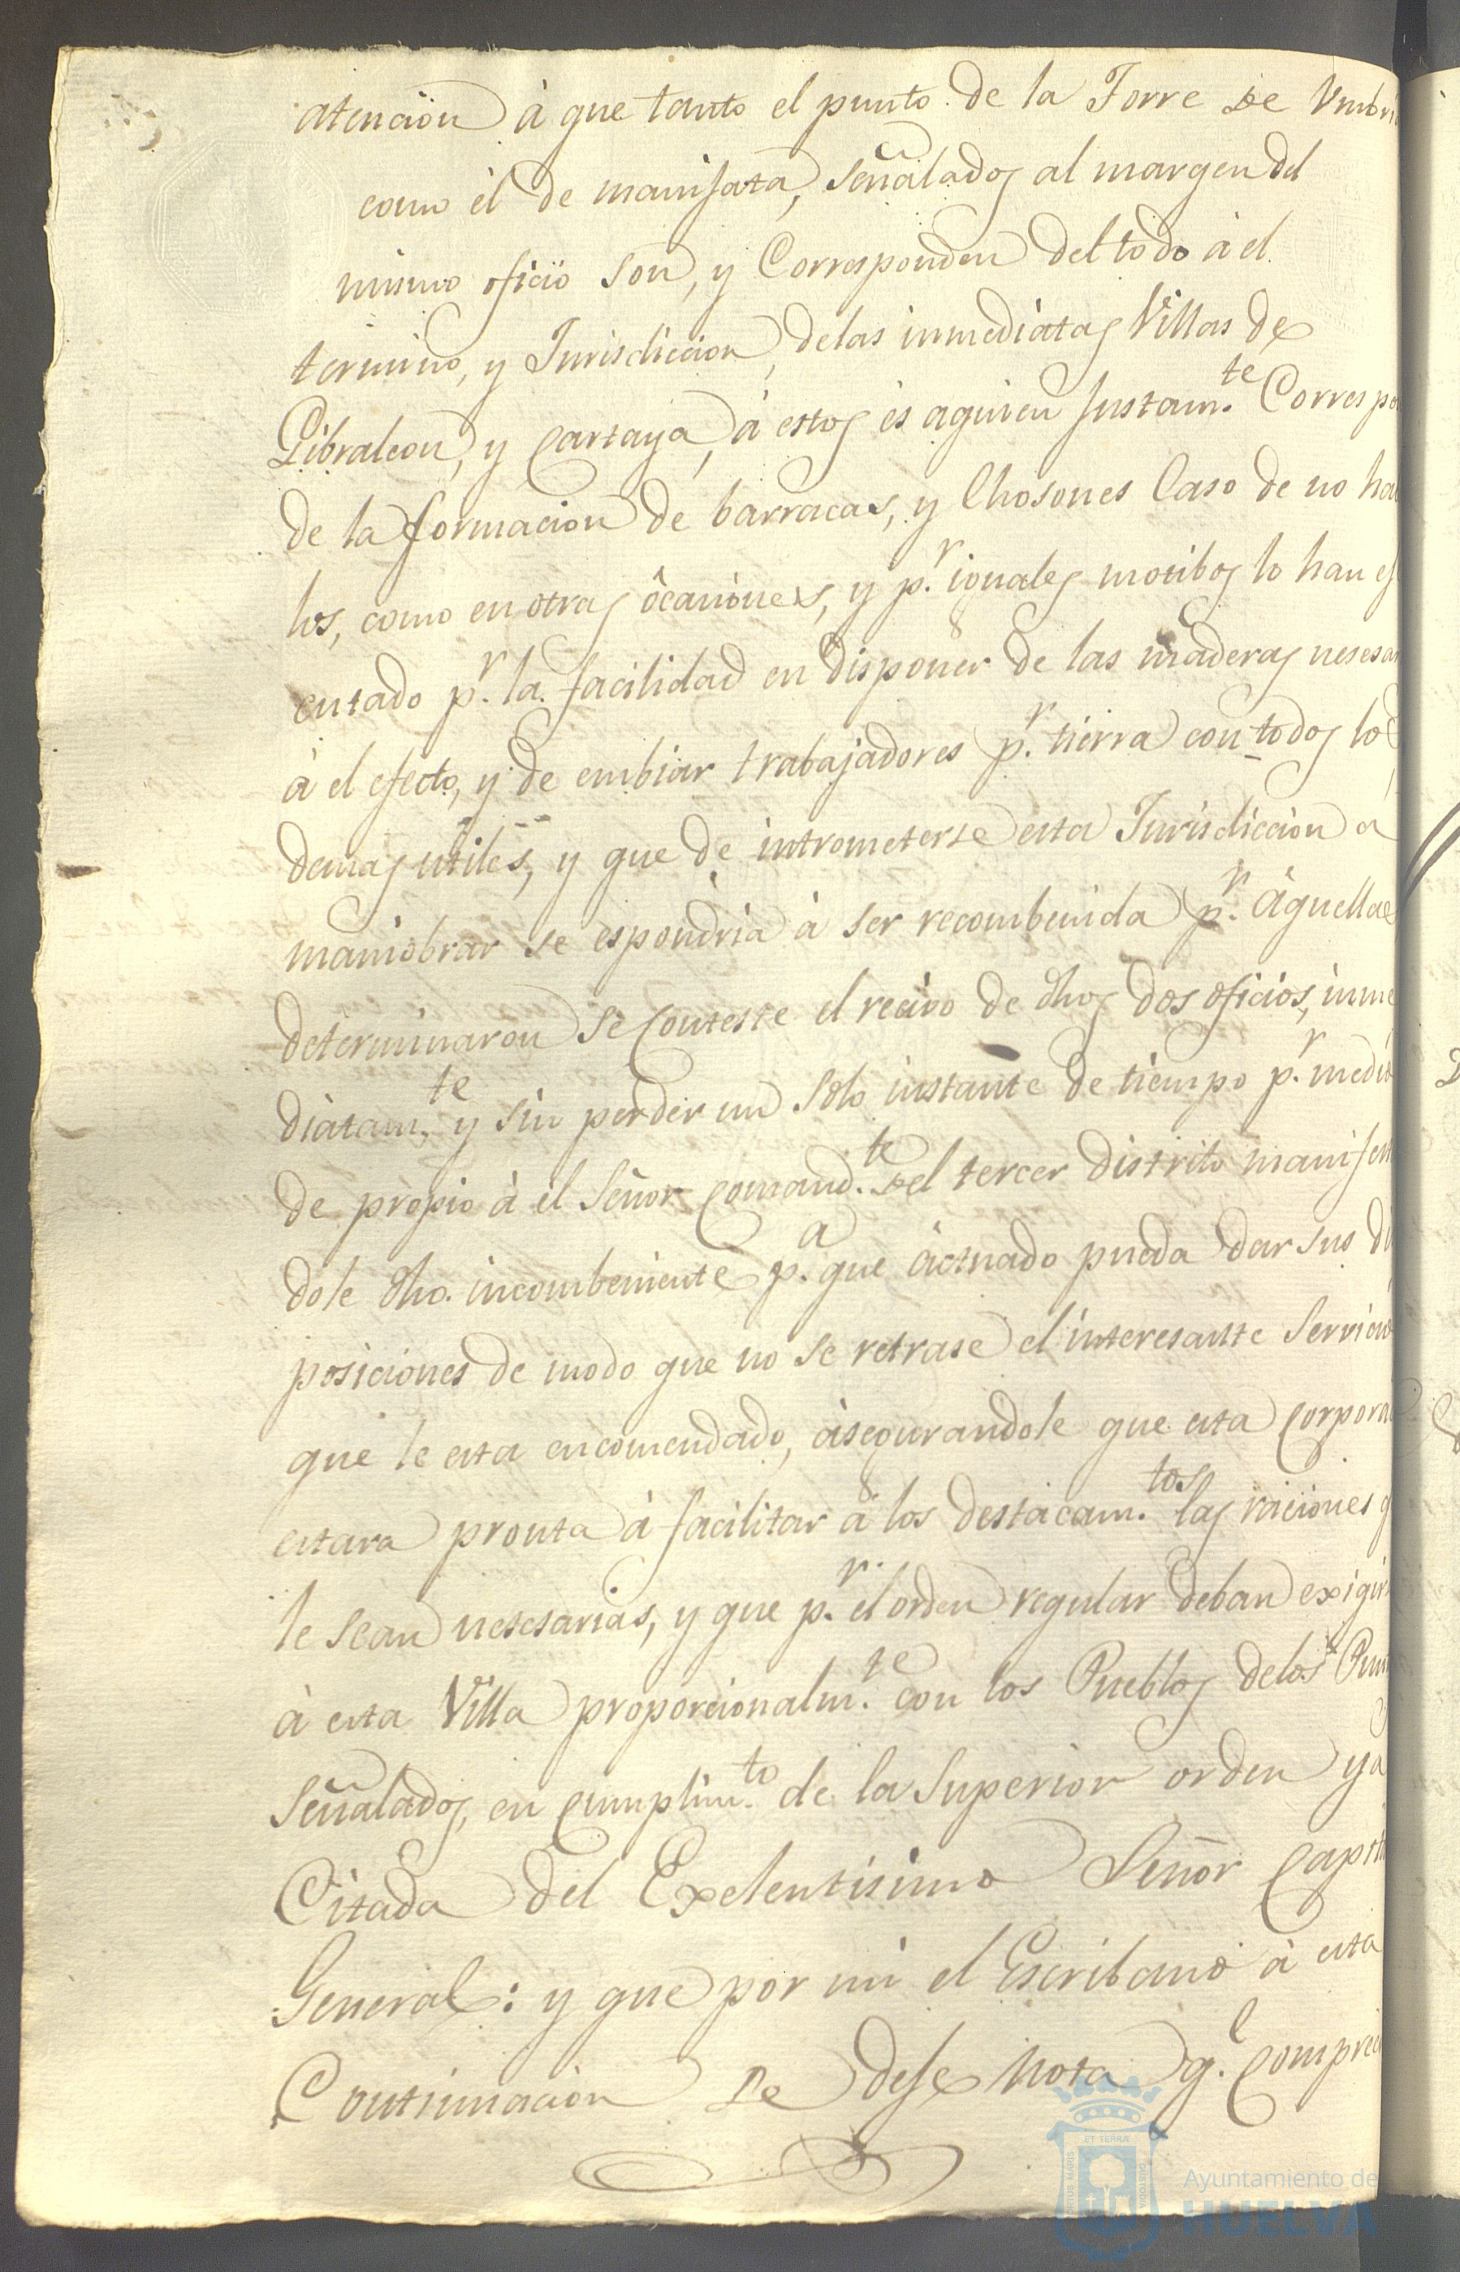 atencion à que tanto el punto de la Torre de Vmbri
como él de manisata, señalados al margen del
mismo oficio son, y Corresponden del todo à el
termino, y Jurisdiccion, de las inmediatas Villas de
Gibraleon, y Cartaya, à estos es aquien Justam.te Correspo
de la formacion de barracas, y Chosones Caso de no ha
los, como en otras ôcaniones, y p.r iguales motibos lo han ej
cutado p.r la facilidad en disponer de las maderas nesesar
à el efecto, y de embiar trabajadores p.r tierra con todos lo
demas utiles, y que de intrometerse esta Jurisdiccion a
maniobrar se espondria à ser recombenida p.r àquellas
determinaron se Conteste el recivo de dhos dos oficios, inme
diatam.te y sin perder un solo instante de tiempo p.r medio
de propio à el Señor Comand.te del tercer distrito manifest
dole dho. incombeniente p.a que àctuado pueda dar sus di
posiciones de modo que no se retrase el interesante Servicio
que le esta encomendado, àsegurandole que esta Corpora
estara pronta à facilitar à los destacam.tos las raciones q
le sean nesesarias, y que p.r el orden regular deban exigir
à esta Villa proporcionalm.te con los Pueblos de los Pun
Señalados, en Cumplim.to de la Superior orden ya
Citada del Exelentisimo Señor Capit
General: y que por mi el Escribano à esta
Continuacion se dese Nota g.l Compre
Ayuntamiento de
HUELVA